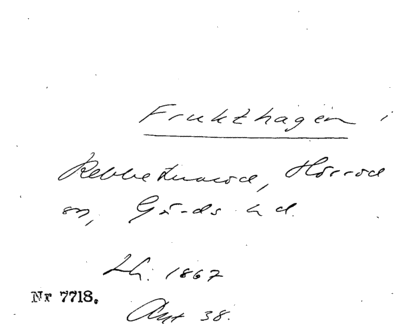 Frukthagen i
Rebbetuaröd, Hörröd
sn, Gärds hd.
Lh. 1867
Nr 7718.
Akt 38.